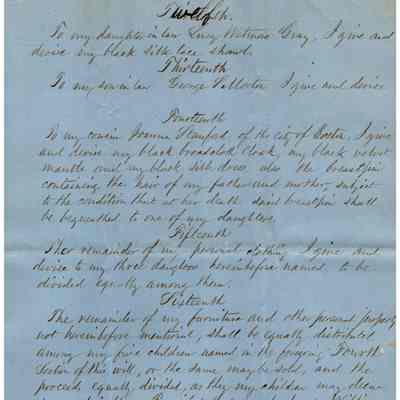 Twelfth.
To my daughter in law Lucy Gray, I give and
devise my black silk lace shawl.
Thirteenth
To my son in law George I give and devise
Fourteenth
To my cousin Joanna of the city of Boston, I give
and devise my black broadcloth cloak, my black velvet
mantle and my black silk dress, also the breastpin
containing the hair of my father and mother, subject
to the condition that at her death said breastpin shall
be bequeathed to one of my daughters.
Fifteenth
The remainder of my personal clothing I give and
devise to my three daughters hereinbefore named, to be
divided equally among them.
Sixteenth
The remainder of my furniture and other personal property
not hereinbefore mentioned, shall be equally distributed
among my five children named in the foregoing Fourth
Section of this will, or the same may be sold, and the
proceeds equally divided, as they my children may deem